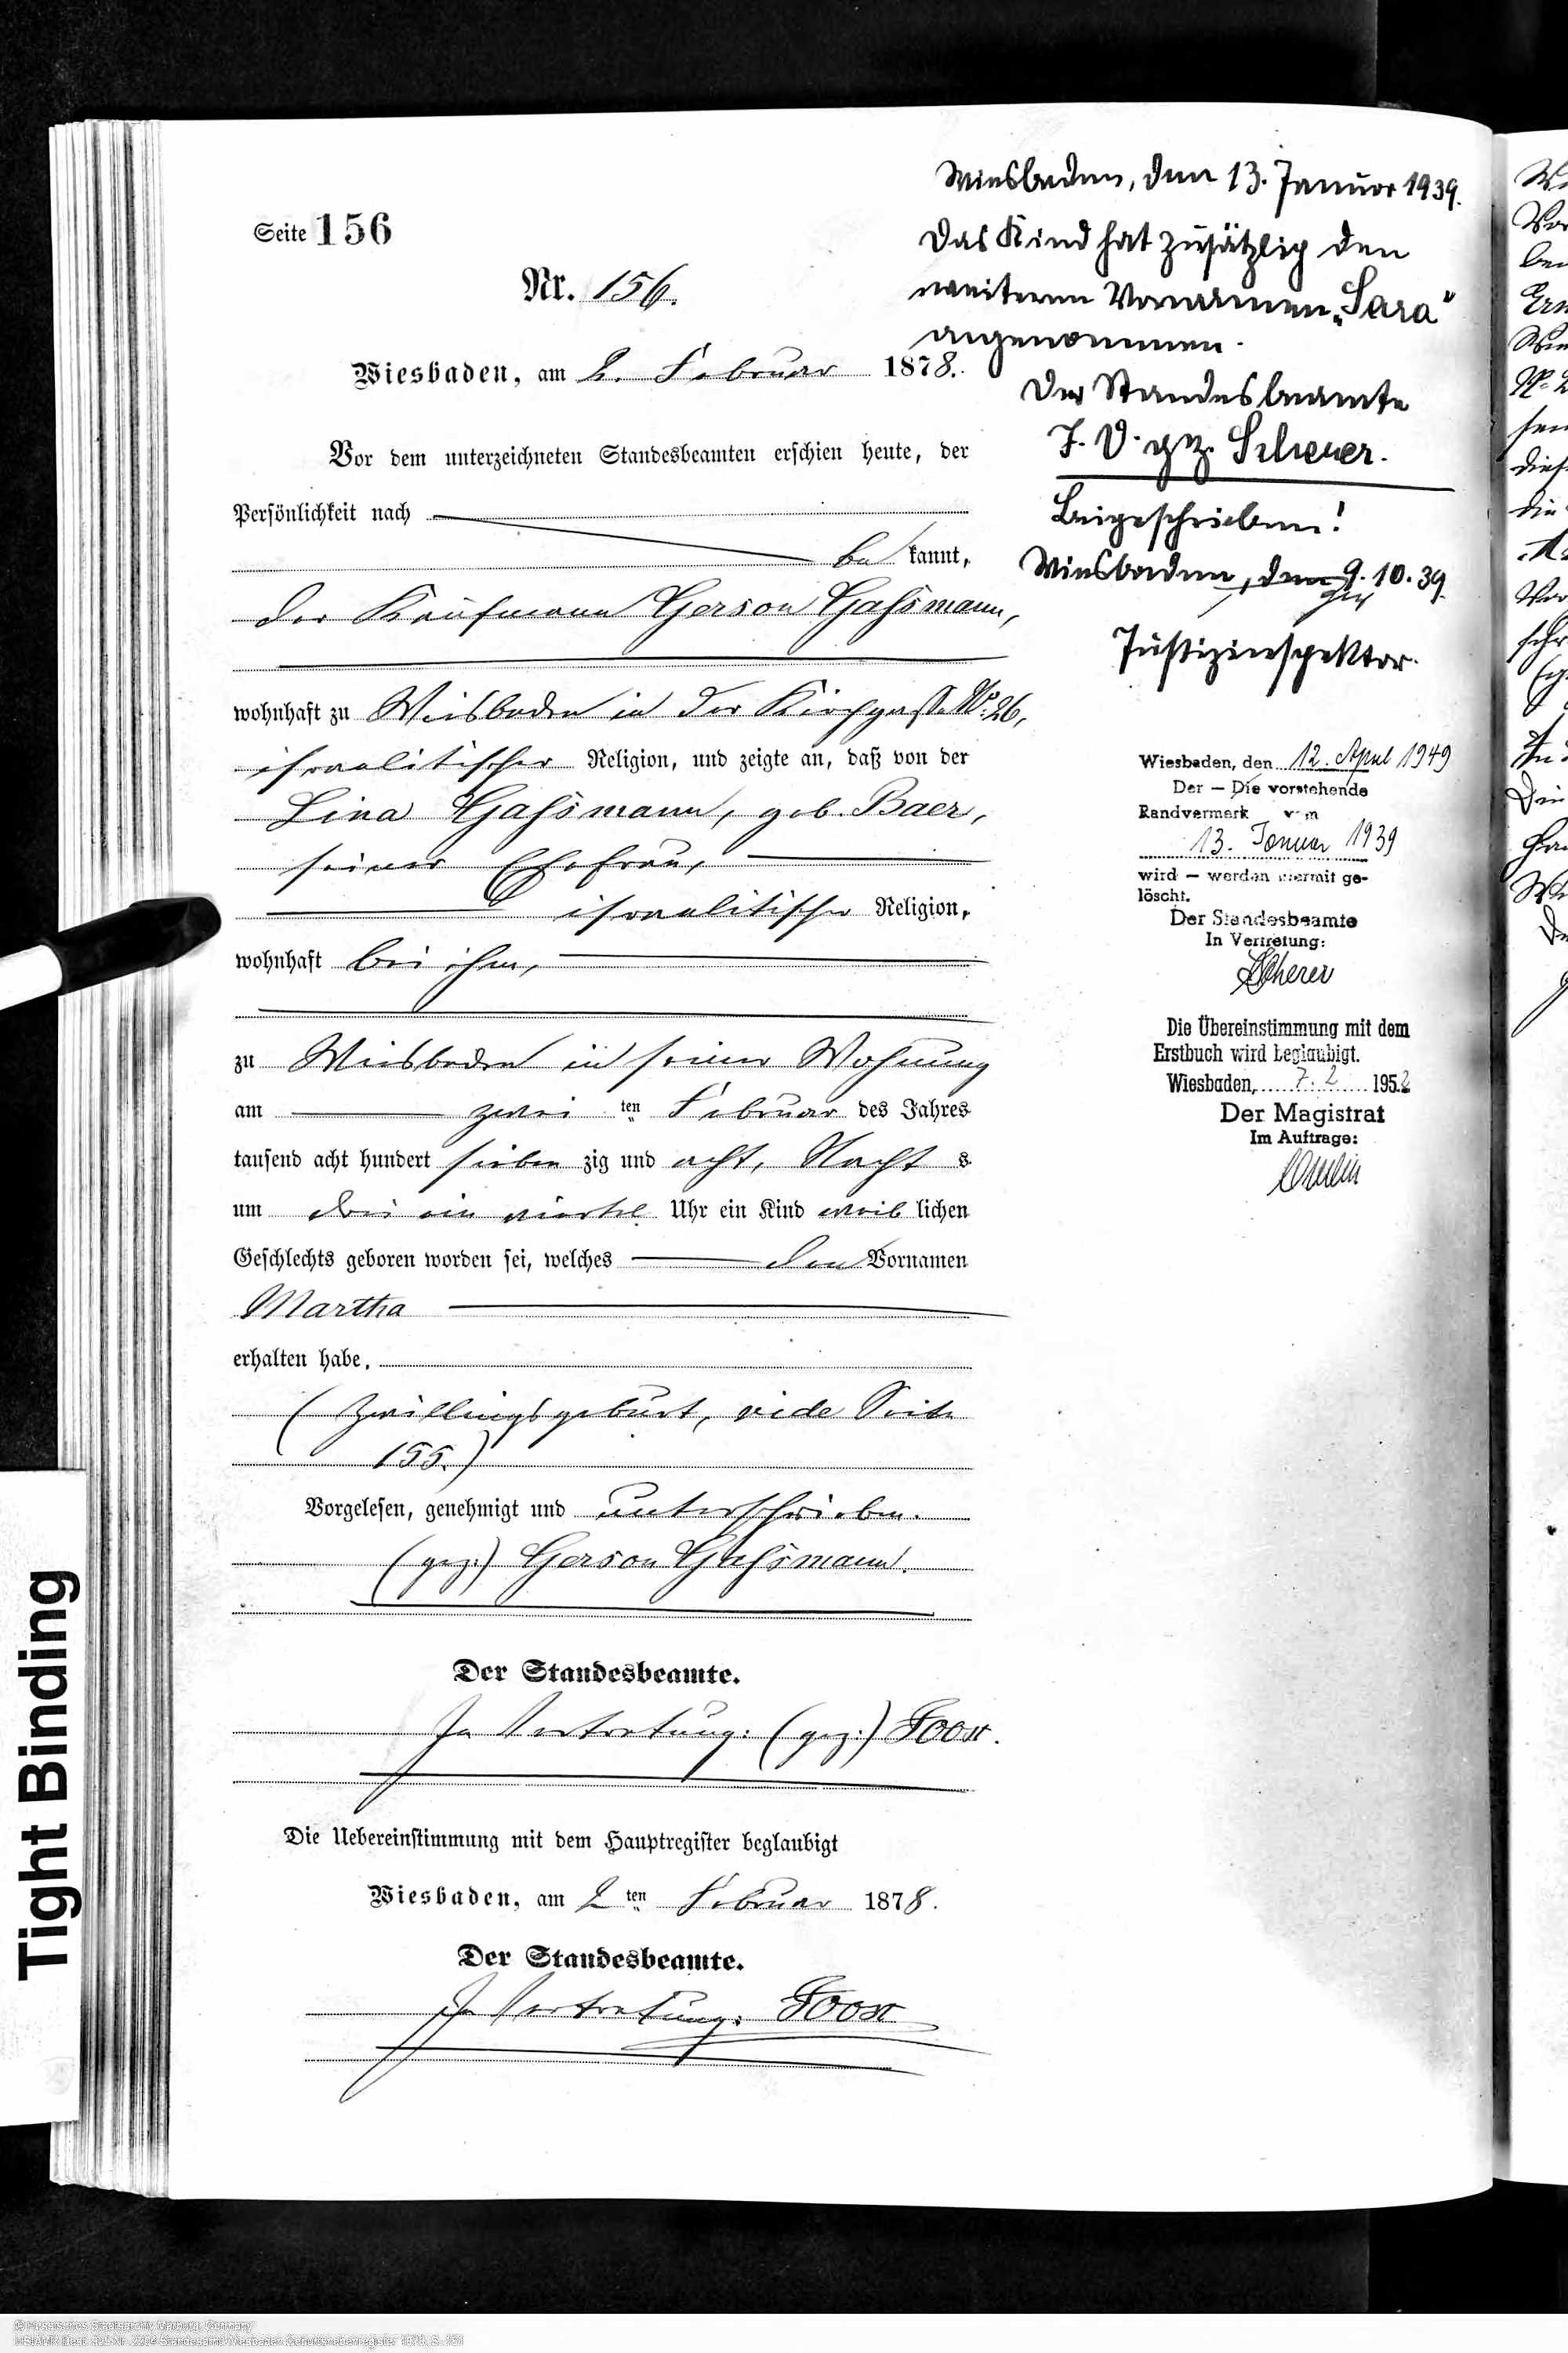 Seite 156
Nr. 156.
Wiesbaden, am 2. Februar 1878.
Vor dem unterzeichneten Standesbeamten erschien heute, der
Persönlichkeit nach
be kannt,
der Kaufmann Gerson Gaßmann,
wohnhaft zu Wiesbaden in der Kirchgasse No. 26,
israelitischer Religion, und zeigte an, daß von der
Lina Gaßmann, geb. Baer,
seiner Ehefrau,
israelitischer Religion,
wohnhaft bei ihm,
zu Wiesbaden in seiner Wohnung
am zwei ten Februar des Jahres
tausend acht hundert sieben zig und acht, Nacht s
um drei ein viertel Uhr ein Kind weib lichen
Geschlechts geboren worden sei, welches den Vornamen
Martha
erhalten habe.
(Zwillingsgeburt, vide Seite
155.)
Vorgelesen, genehmigt und unterschrieben.
(gez:) Gerson Gaßmann.
Der Standesbeamte.
In Vertretung: (gez:) Joost.
Die Uebereinstimmung mit dem Hauptregister beglaubigt
Wiesbaden, am 2 ten Februar 1878.
Der Standesbeamte.
In Vertretung: Joost
Wiesbaden, den 13. Januar 1939.
Das Kind hat zusätzlich den
weiteren Vornamen „Sara"
angenommen.
Der Standesbeamte
J. V. gez. Scherer.
Beigeschrieben!
Wiesbaden, den 9. 10. 39.
Justizinspektor.
Wiesbaden, den 12. April 1949
Der — Die vorstehende
Randvermerk vom
13. Januar 1939
wird — werden hiermit ge-
löscht.
Der Standesbeamte
In Vertretung:
Scherer
Die Übereinstimmung mit dem
Erstbuch wird beglaubigt.
Wiesbaden, 7. 2 1952
Der Magistrat
Im Auftrage:
Tight Binding